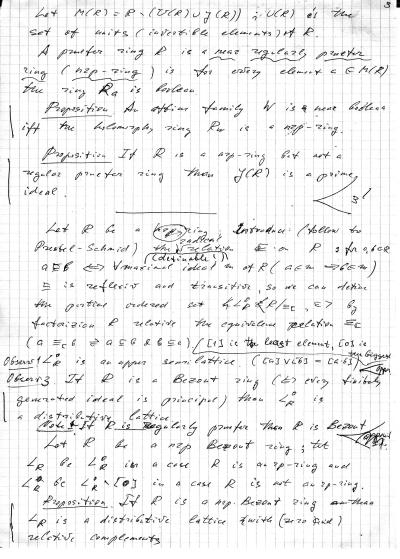 3
Let M(R) = R \ (U(R) ∪ J(R)) ; U(R) is the
set of units (invertible elements) of R.
A pruefer ring R is a near regularly pruefer
ring (nrp-ring) is for every element a ∈ M(R)
the ring Ra is boolean
Proposition An affine family W is near boolean
iff the holomorphy ring Rw is a nrp-ring.
Proposition If R is a nrp-ring but not a
regular pruefer ring then J(R) is a prime
ideal.
Let R be a ring. Introduce (follow to
Prestel-Schmid) the radical relation ⊑ on R : for a, b ∈ R
(definable!)
a ⊑ b ⟺ ∀ maximal ideal m of R (a ∈ m ⇒ b ∈ m)
⊑ is reflexiv and transitive, so we can define
the partial ordered set L°R = < R/≡⊑, ⊑ > by
factorizion R relative the equivalence relation ≡⊑
(a ≡⊑ b ⇌ a ⊑ b & b ⊑ a) / [1] is the least element, [0] is
the biggest
Observ1 L°R is an upper semilattice ([a] ∪ [b] = [a·b])
Observ2 If R is a Bezout ring (⟺ every finitely
generated ideal is principal) then L°R is
a distributive lattice
Note: If R is regularly pruefer than R is Bezout
Let R be a nrp Bezout ring; let
LR be L°R in a case R is an rp-ring and
LR be L°R \ [0] in a case R is not an rp-ring.
Proposition. If R is a nrp. Bezout ring than
LR is a distributive lattice with (zero and)
relative complements